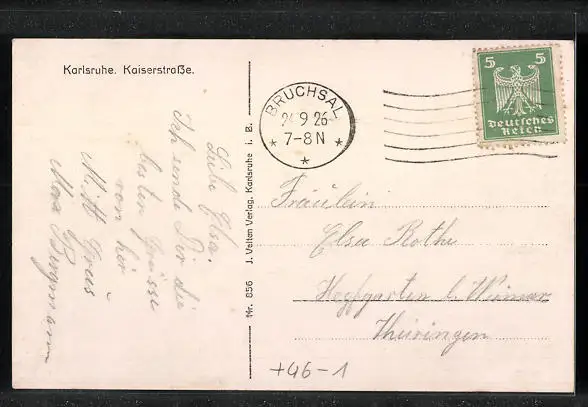 Karlsruhe. Kaiserstraße.
Liebe Elsa.
Ich sende Dir die
besten Grüsse
von hier
Mit Grus
Max Bergmann
Nr. 856 J. Velten Verlag, Karlsruhe i. B.
BRUCHSAL
24 9 26
7-8 N
5 5
Deutsches
Reich
Fräulein
Elsa Rothe
Hopfgarten b. Weimar
Thüringen
+46-1